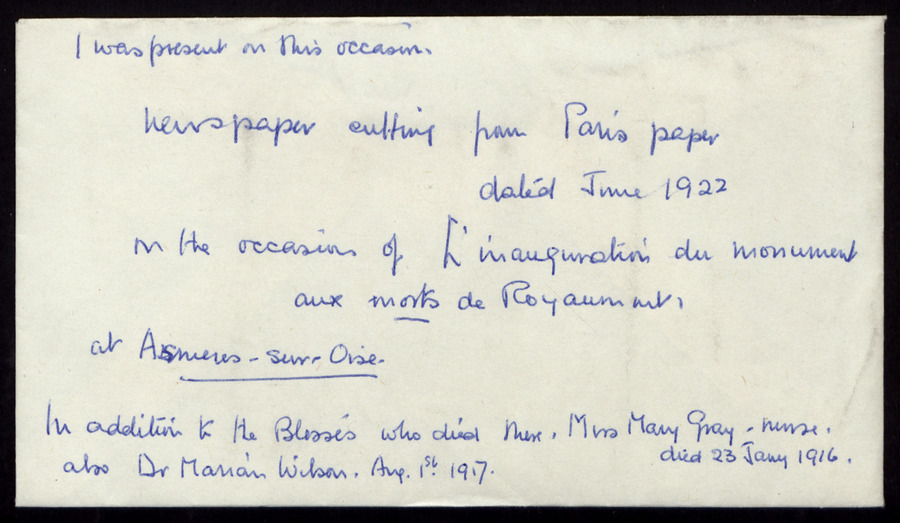 I was present on this occasion.
newspaper cutting from Paris paper
dated June 1922
on the occasion of L'inauguration du monument
aux morts de Royaumont,
at Asnieres-sur-Oise.
In addition to the Blessés who died there. Miss Mary Gray - nurse.
died 23 Jany 1916.
also Dr Marian Wilson. Aug. 1st 1917.